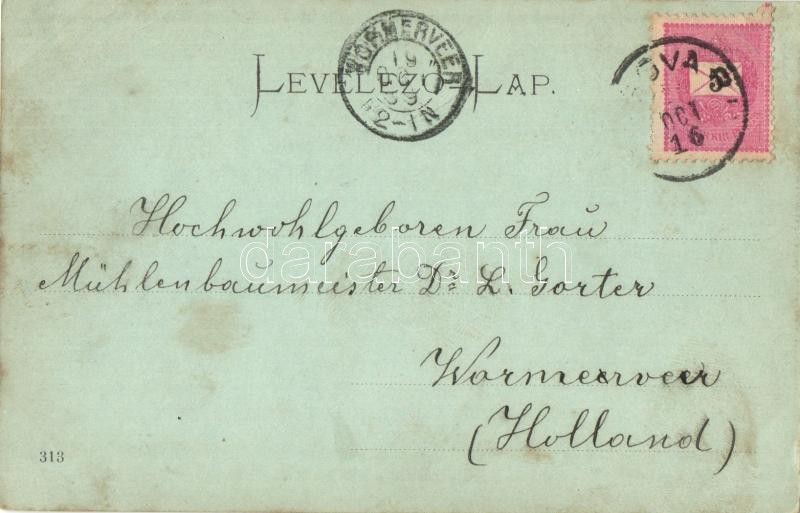 LEVELEZŐ-LAP.
WORMERVEER
19
12-1N
OVA
5
OCT
16
Hochwohlgeboren Frau
darabanth
Mühlenbaumeister Dr L. Gorter
Wormerveer
(Holland)
313